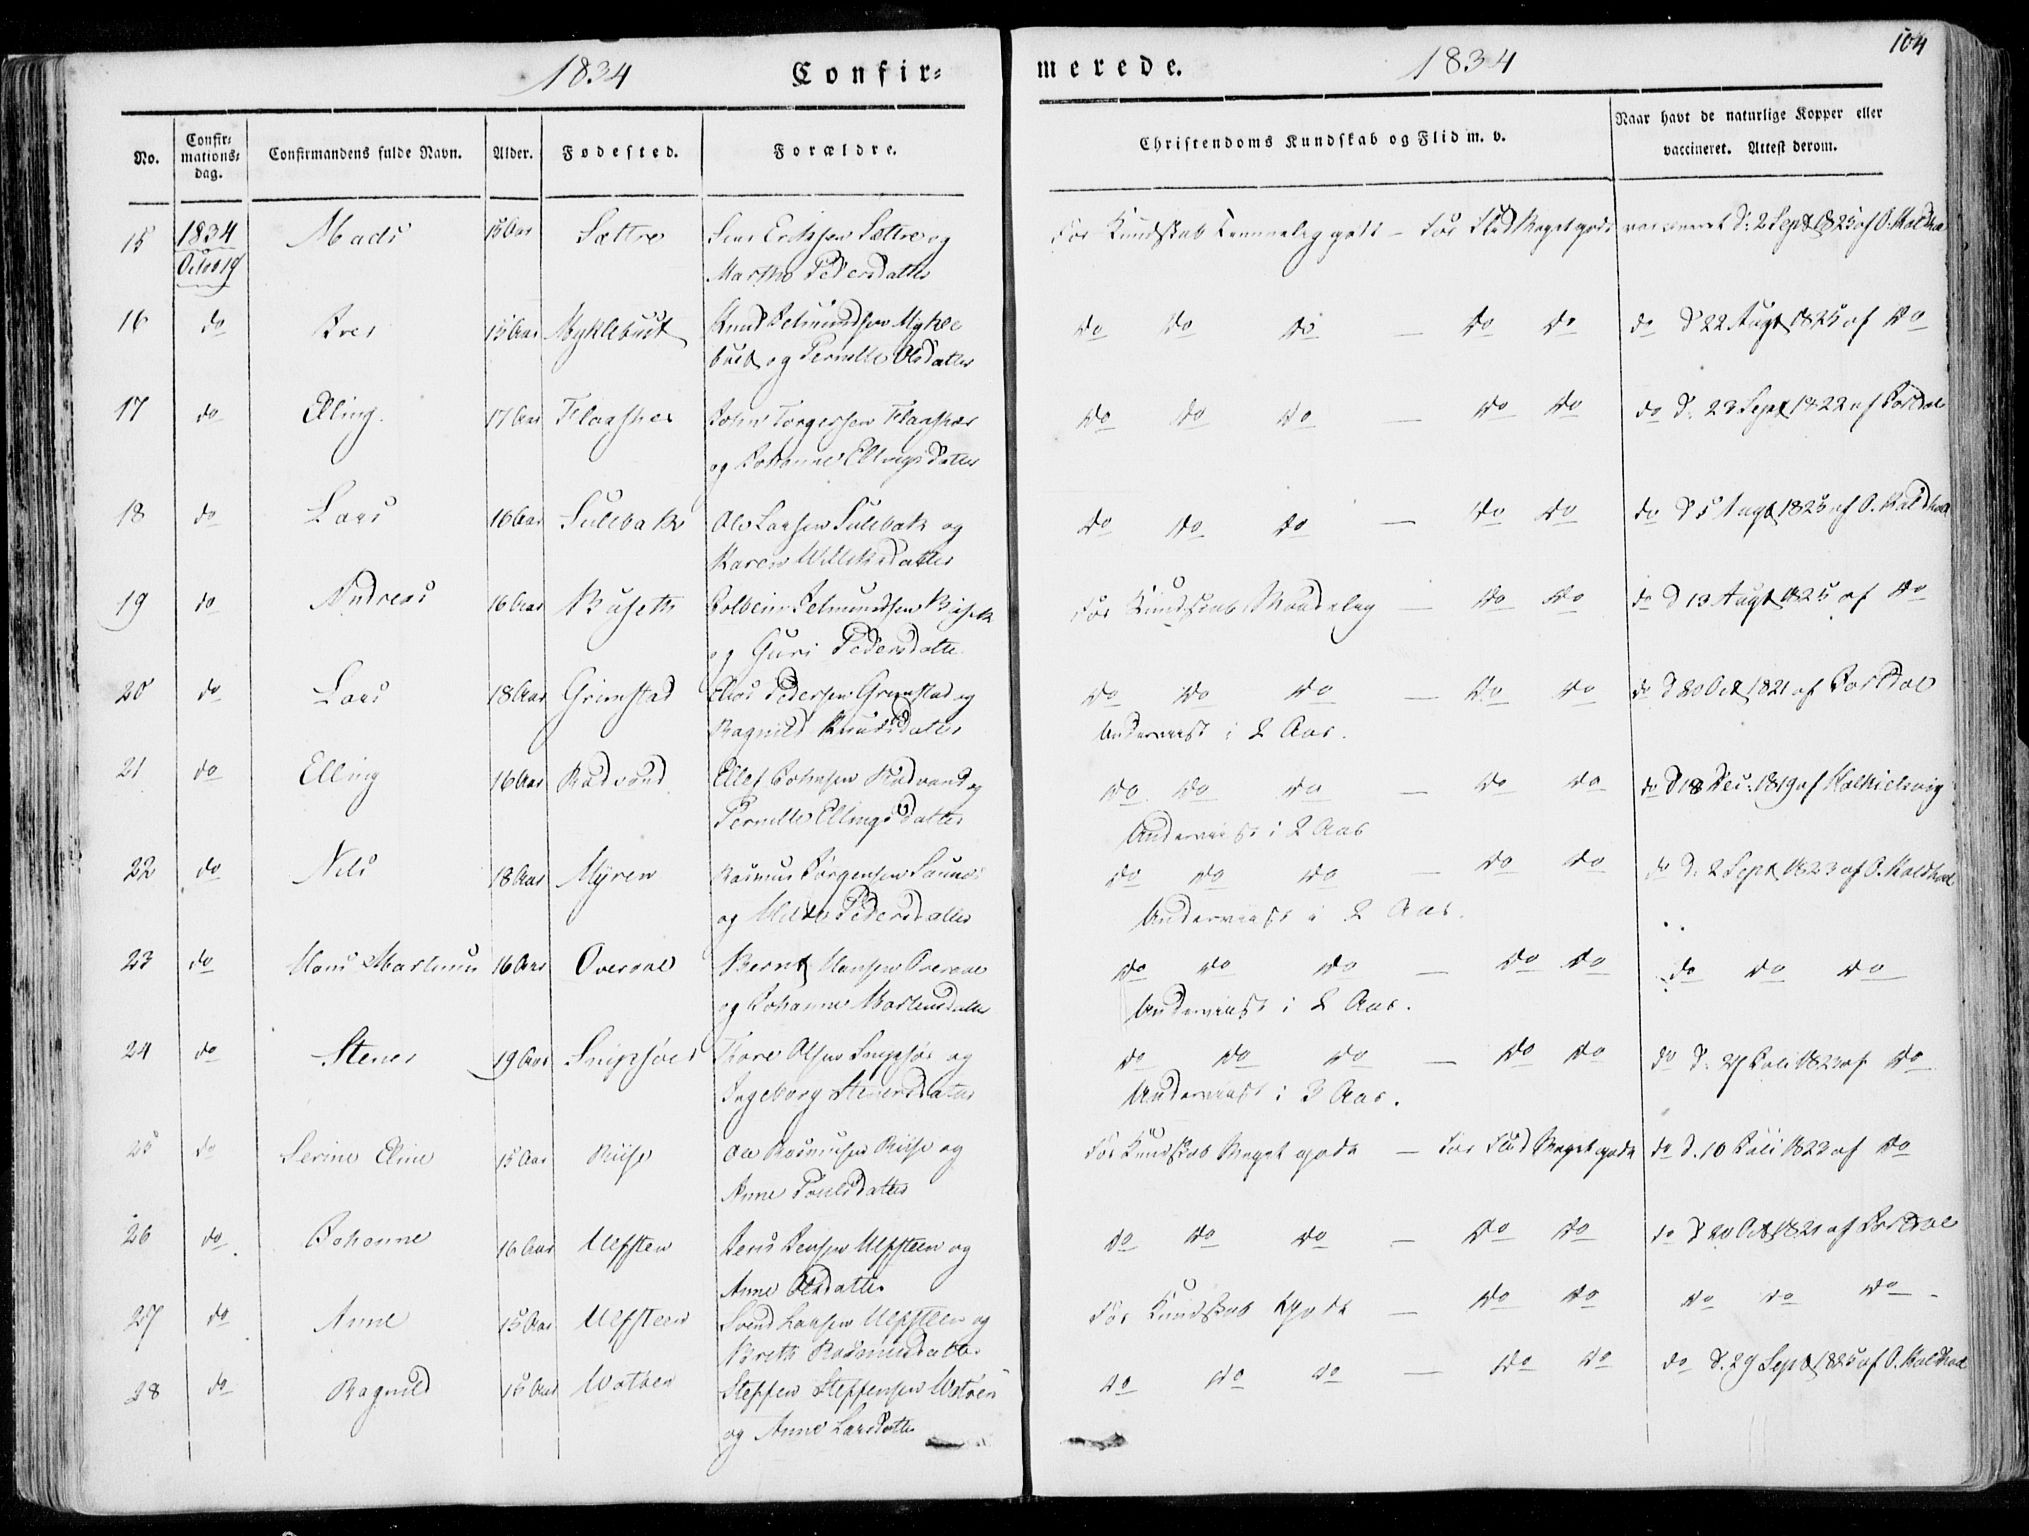 1834 Confir= merede. 1834 104
No. Confir=mations=dag. Confirmandens fulde Navn. Alder. Fødested. Forældre. Christendoms Kundskab og Flid m. v. Naar havt de naturlige Kopper eller vaccineret. Attest derom.
15 1834 Mads 15 Aar Sættre Erichsen Sættre og For Kundskab temmelig godt – For Flid Meget godt vaccineret d: 2 Sept 1825 af O. Koldhol
Marthe Pedersdatter
16 do Iver 15 Aar Myklebust Knud Helmundsen Mykle do do do – do do do d 22 Augt 1825 af do
bust og Pernille Olsdatter
17 do Elling 17 Aar Flaasker John Torgersen Flaaskær do do do – do do do d. 23 Sept 1822 af
og Johanne Ellingsdatter
18 do Lars 16 Aar Sulebak Ole Larsen Sulebak og do do do – do do do d 5 Augt 1825 af O. Koldhol
Karen Willeksdatter
19 do Andreas 16 Aar Buseth Kolbein Helmundsen Buseth For Kundskab Maadelig – do do do d 13 Augt 1825 af do
og Guri Pedersdatte
20 do Lars 18 Aar Grimstad Pedersen Grimstad og do do do – do do do d 20 Oct 1821 af
Ragnild Knudsdatter Underviist i 2 Aar.
21 do Elling 16 Aar Radvand Ellef Johnsen Radvand og do do do – do do do d 18 Dec. 1819 af
Pernille Ellingsdatter Underviist i 2 Aar
22 do Nils 18 Aar Myren Rasmus Jørgensen do do do – do do do d. 2 Sept 1823 af O. Koldhol
og Pedersdatter Underviist i 2 Aar.
23 do Hans Martinus 16 Aar Overaae Bernt Hansen Overaae do do do – do do do do do
og Johanne Martinusdatter Underviist i 2 Aar.
24 do Stener 19 Aar Snipsøer Thore Olsen Snipsør og do do do – do do do d. 27 Juli 1823 af do
Ingeborg Stenersdatter Underviist i 3 Aar.
25 do Serine Eline 15 Aar Riise Ole Rasmusen Riise og For Kundskab Meget godt – For Flid Meget godt do d. 10 Juli 1823 af do
Anne Poulsdatter
26 do Johanne 16 Aar Ulfsten Jens Jensen Ulfsteen og do do do – do do do d 20 Oct 1821 af
Anne Olsdatter
27 do Anne 15 Aar Ulfsteen Svend Larsen Ulfsteen og For Kundskab Godt – do do do do do
Brith Rasmusdatter
28 do Ragnild 15 Aar Watøen Steffen Steffensen Watøen do do do – do do do d. 29 Sept 1825 af O. Koldhol
og Anne Larsdatter